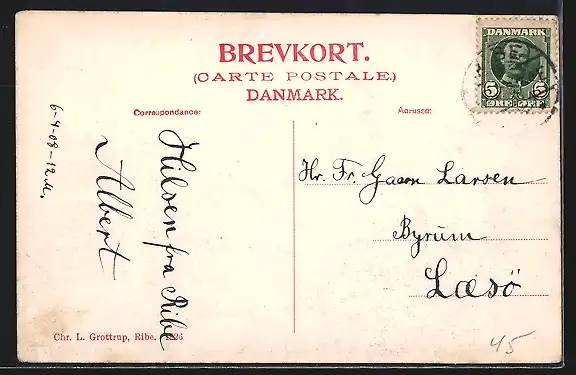 BREVKORT.
(CARTE POSTALE.)
DANMARK.
Correspondance:
Adresse:
DANMARK
5 5
ØRE ØRE
6-4-08-12 M.
Hilsen fra Ribe
Albert
Hr. Fr. Larsen
Byrum
Læsö
Chr. L. Grottrup, Ribe.
45